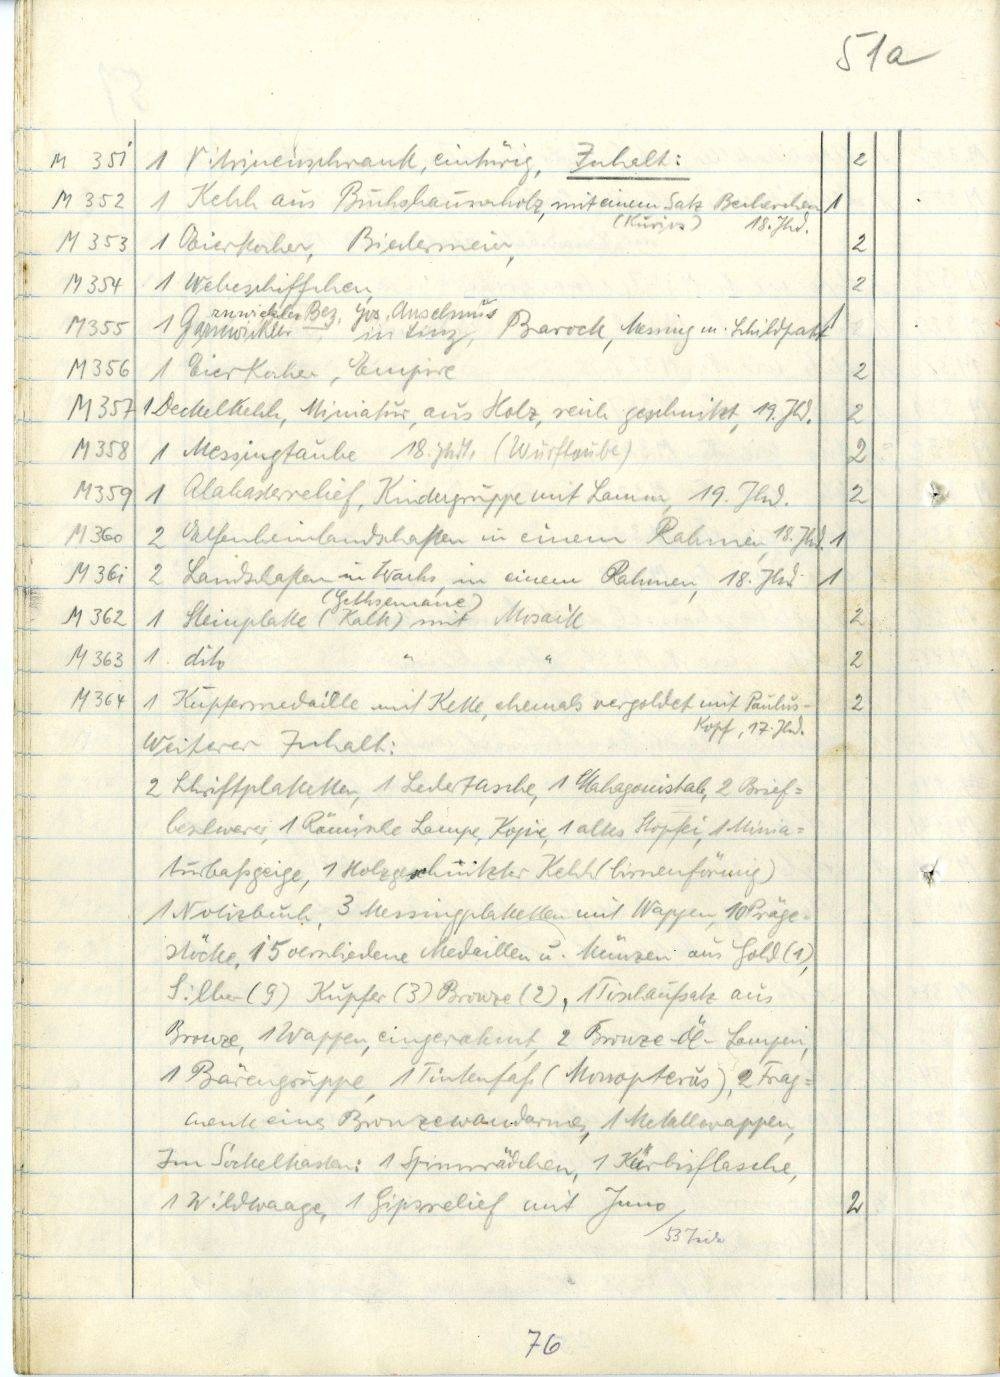 51a
M 351 1 Vitrinenschrank, eintürig, Inhalt: 2
M 352 1 Kelch aus Buchsbaumholz, mit einem Satz Becherchen 1
(Kurios) 18. Jhd.
M 353 1 Eierkocher, Biedermeier, 2
M 354 1 Webeschiffchen 2
zwickler Bez. Joz. Anselmus
M 355 1 Garnwickler in Linz, Barock, Messing u. Schildpatt 1
M 356 1 Eierkocher, Empire 2
M 357 1 Deckelkelch, Miniatur, aus Holz, reich geschnitzt, 19. Jhd. 2
M 358 1 Messingtaube 18. Jhdt. (Wurftaube) 2
M 359 1 Alabasterrelief, Kindergruppe mit Lamm, 19. Jhd. 2
M 360 2 Elfenbeinlandschaften in einem Rahmen, 18. Jhd. 1
M 361 2 Landschaften in Wachs, in einem Rahmen, 18. Jhd. 1
(Gethsemane)
M 362 1 Steinplatte (Kalk) mit Mosaik 2
M 363 1 dito " " 2
M 364 1 Kupfermedaille mit Kette, ehemals vergoldet mit Paulus- 2
Kopf, 17. Jhd.
Weiterer Inhalt:
2 Schriftplaketten, 1 Ledertasche, 1 Mahagonistab, 2 Brief=
beschwerer, 1 Römische Lampe, Kopie, 1 altes 1 Minia=
turbaßgeige, 1 Holzgeschnitzter Kelch (birnenförmig)
1 Notizbuch, 3 Messingplaketten mit Wappen, 10 Präge-
stöcke, 15 verschiedene Medaillen u. Münzen aus Gold (1),
Silber (9) Kupfer (3) Bronze (2), 1 Tischaufsatz aus
Bronze, 1 Wappen, eingerahmt, 2 Bronze-Öl-Lampen,
1 Bärengruppe, 1 Tintenfaß (Monopterus), 2 Frag=
mente eines Bronzewandarmes, 1 Metallwappen,
Im Sockelkasten: 1 Spinnrädchen, 1 Kürbisflasche,
1 Wildwaage, 1 Gipsrelief mit Juno 2
53
76